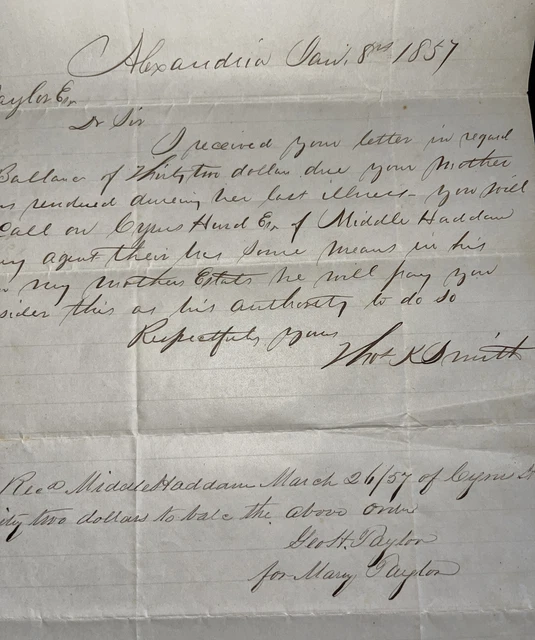 Alexandria Jan. 8th 1857
aylor Esr
Dr Sir
I received your letter in regard
Ballance of Thirty two dollars due your mother
s rendered dureing her last illness - you will
Call on Cyrus Hurd Esr of Middle Haddam
my agent their has some means in his
my mothers Estate he will pay you
sider this as his authority to do so
Respectfully yours
Thos K Smith
Recd Middle Haddam March 26/57 of Cyrus H
ity two dollars to bale the above order
Geo H. Taylor
for Mary Taylor